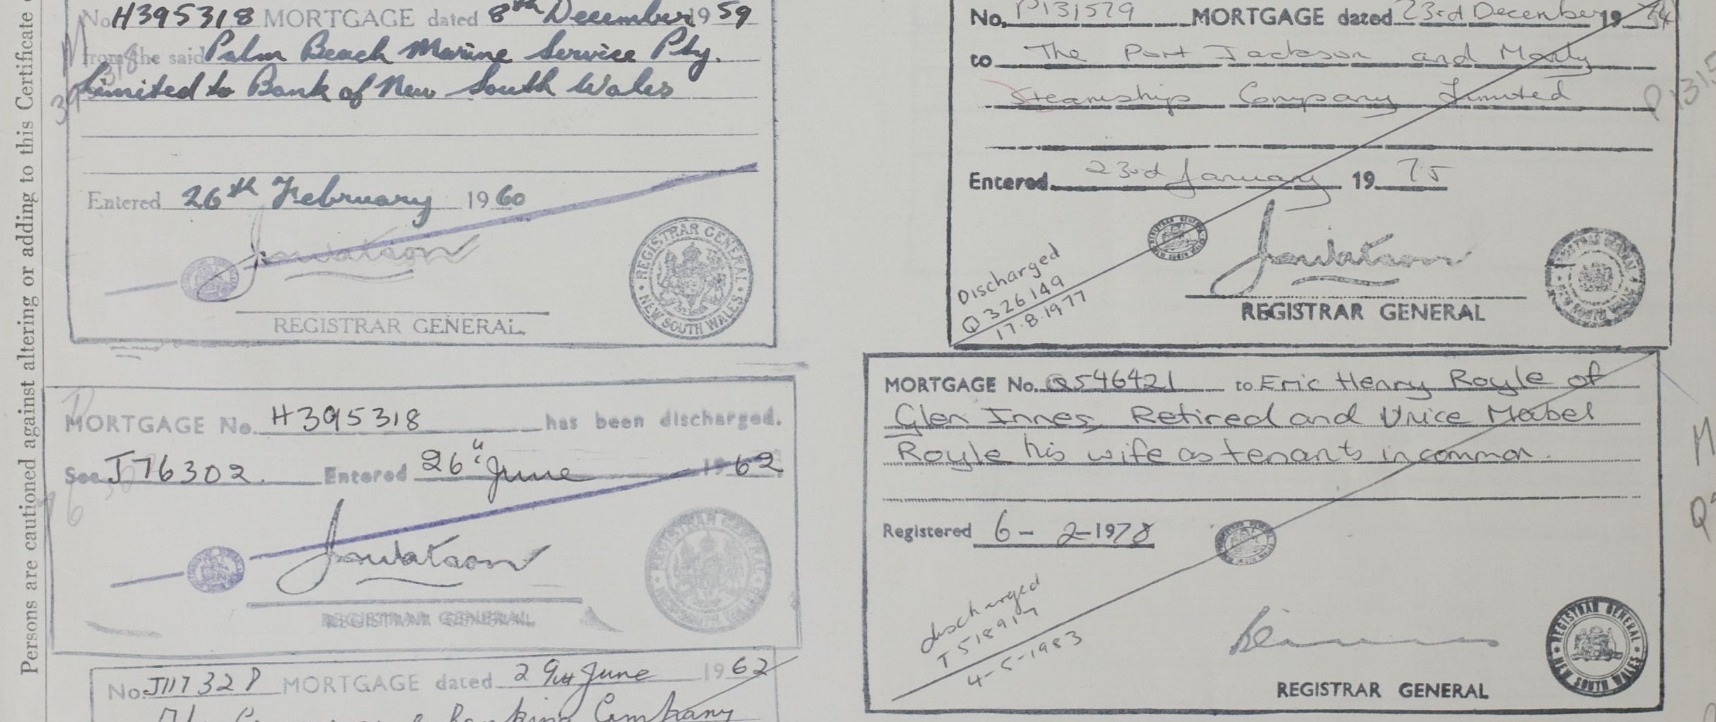 Persons are cautioned against altering or adding to this Certificate
No. H395318 MORTGAGE dated 8th December 1959
from the said Palm Beach Marine Service Pty.
Limited to Bank of New South Wales
Entered 26th February 1960
REGISTRAR GENERAL.
REGISTRAR GENERAL NEW SOUTH WALES
MORTGAGE No. H395318 has been discharged.
See J76302. Entered 26" June 1962
REGISTRAR GENERAL
REGISTRAR GENERAL NEW SOUTH WALES
No. J117328 MORTGAGE dated 29th June 1962
Banking Company
No. P131579 MORTGAGE dated 23rd December 1974
to The Port Jackson and Manly
Steamship Company Limited
Entered 23rd January 1975
Discharged
Q326149
17.8.1977
REGISTRAR GENERAL
MORTGAGE No. Q546421 to Eric Henry Royle of
Glen Innes, Retired and Unice Mabel
Royle his wife as tenants in common.
Registered 6-2-1978
discharged
T518917
4-5-1983
REGISTRAR GENERAL
REGISTRAR GENERAL NEW SOUTH WALES